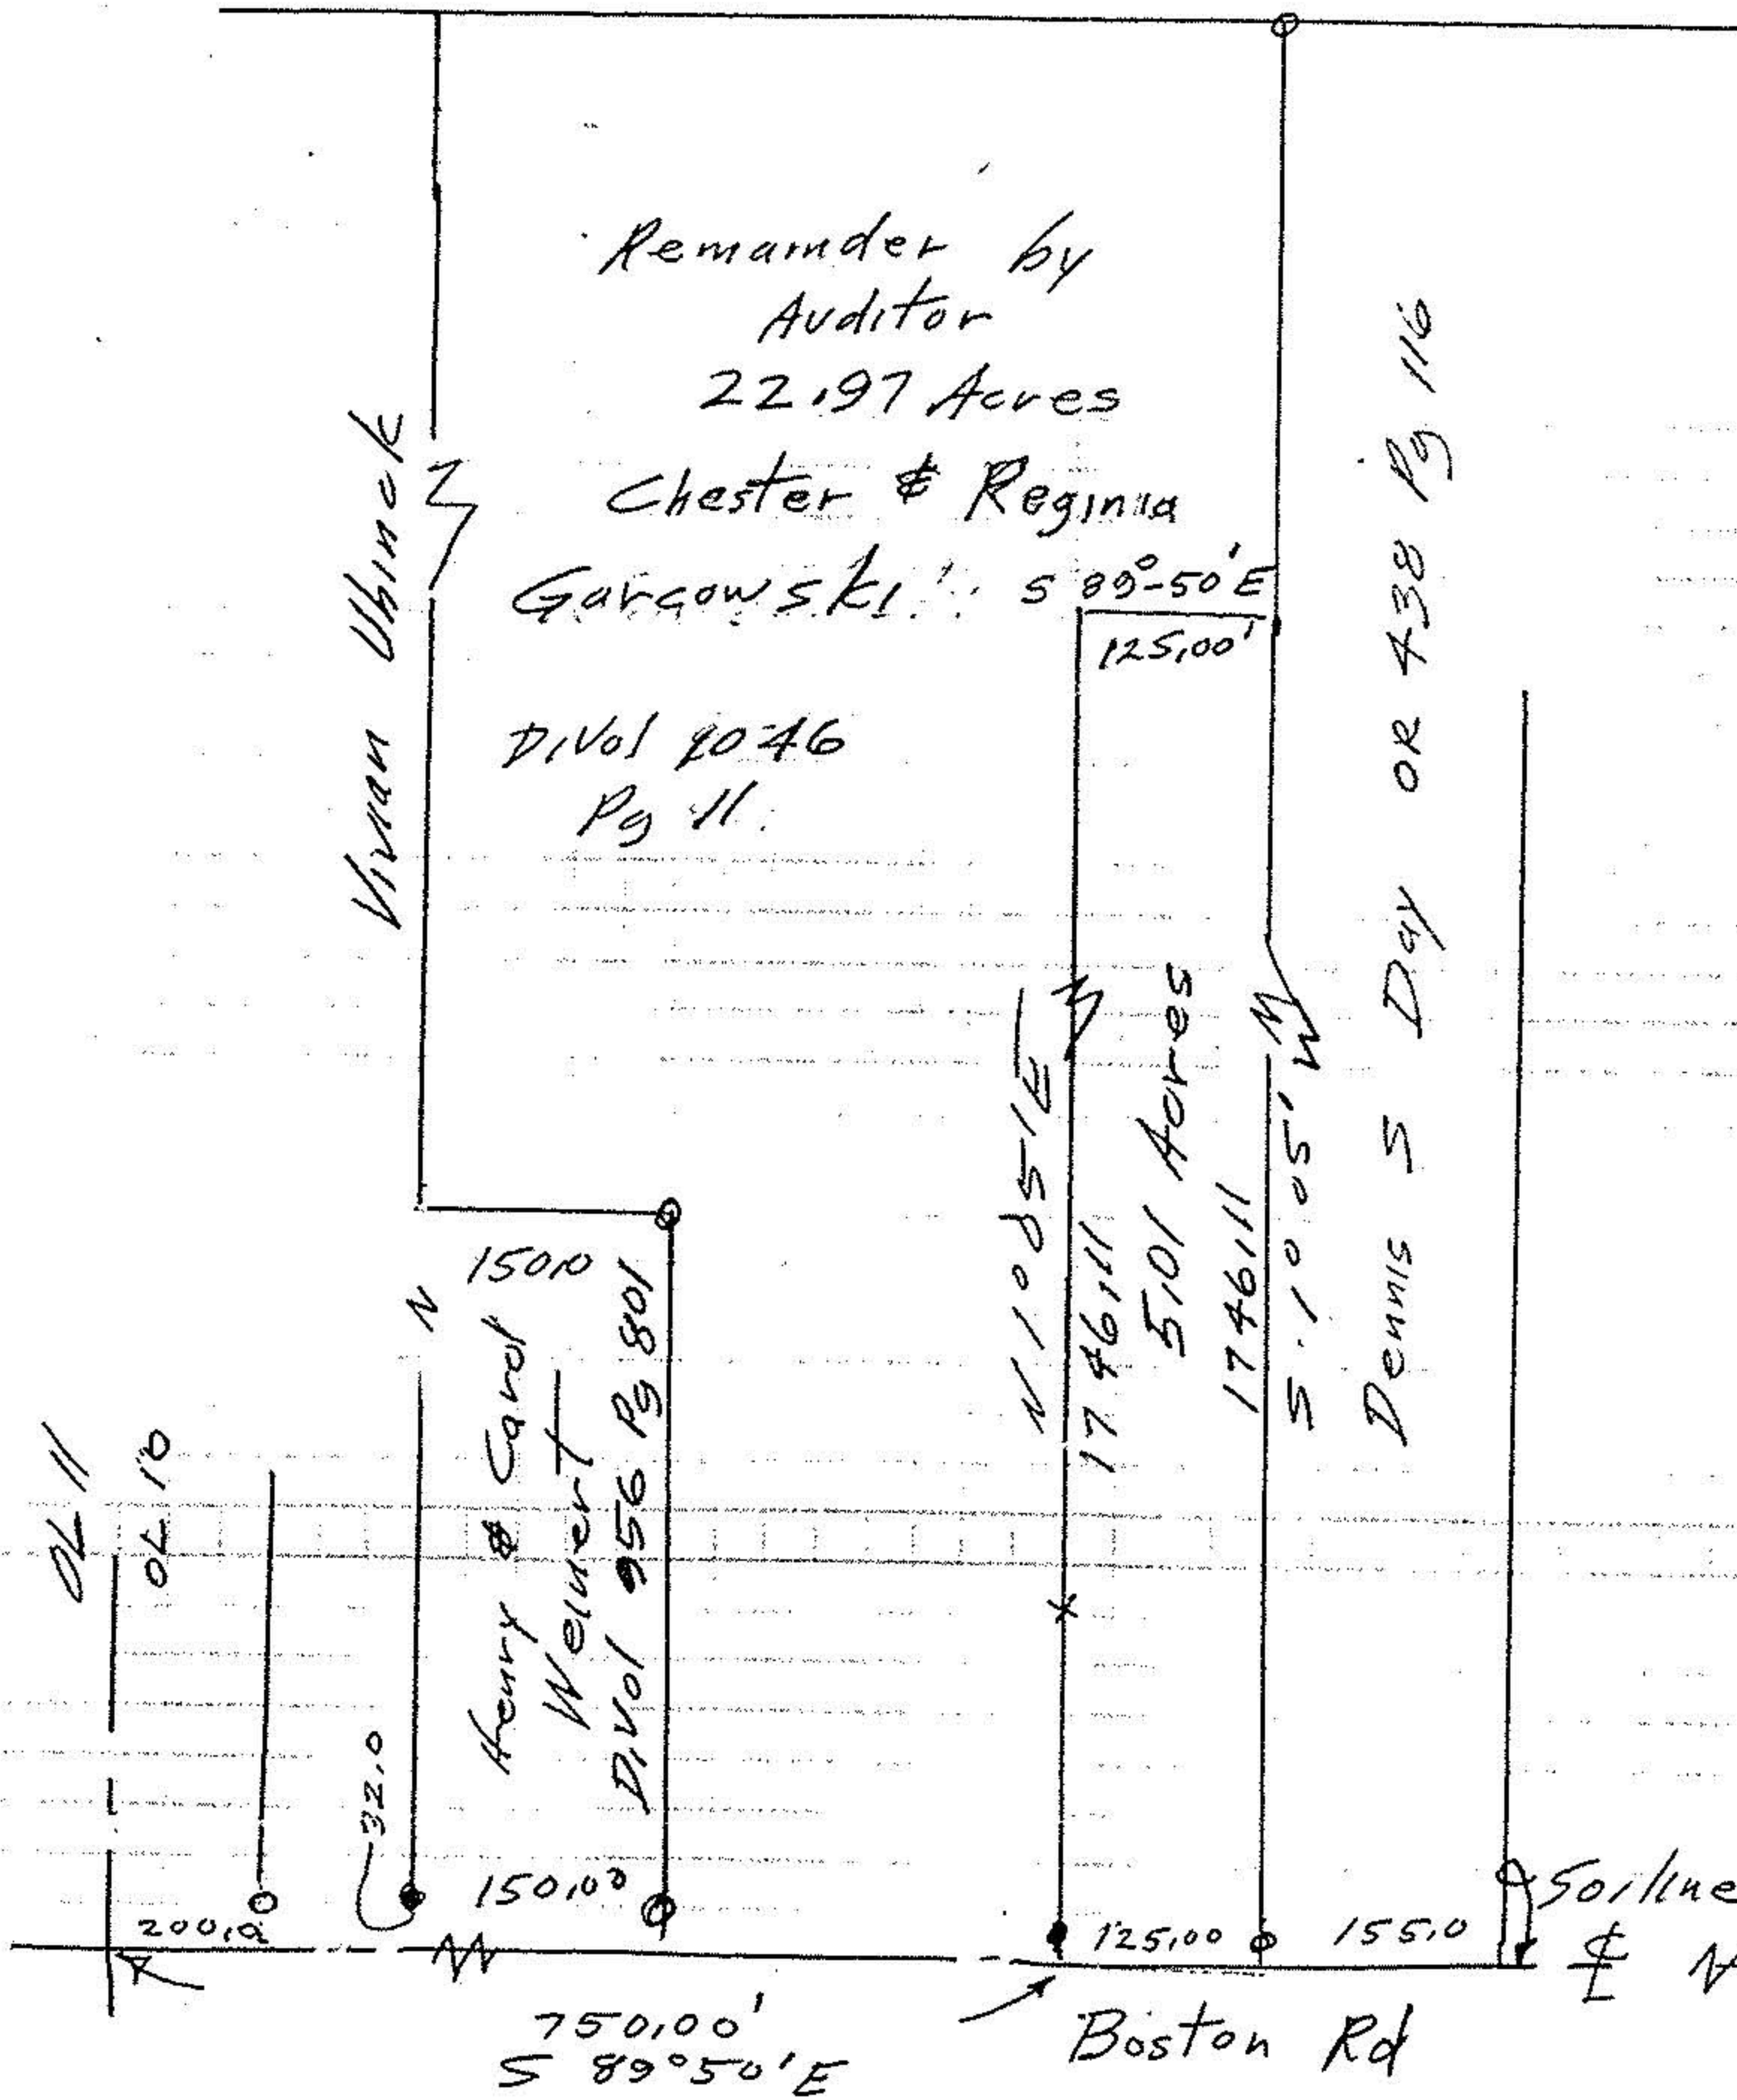 Remainder by
Auditor
22.97 Acres
Chester & Reginia
S 89°-50' E
125.00'
D.Vol 2046
Pg 11
Vivian Ubinck
Dennis S Day OR 438 Pg 116
N 1° 05' E
1746.11
5.01 Acres
1746.11
S 1° 05' W
150.0
Henry & Carol
Weinert
D.Vol 956 Pg 801
OL 11
OL 10
32.0
200.0
150.00
125.00
155.0
So. line
℄
750.00'
S 89°50' E
Boston Rd